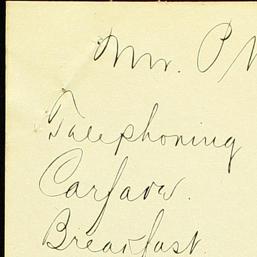 Mr. P
Telephoning
Carfare.
Breakfast.